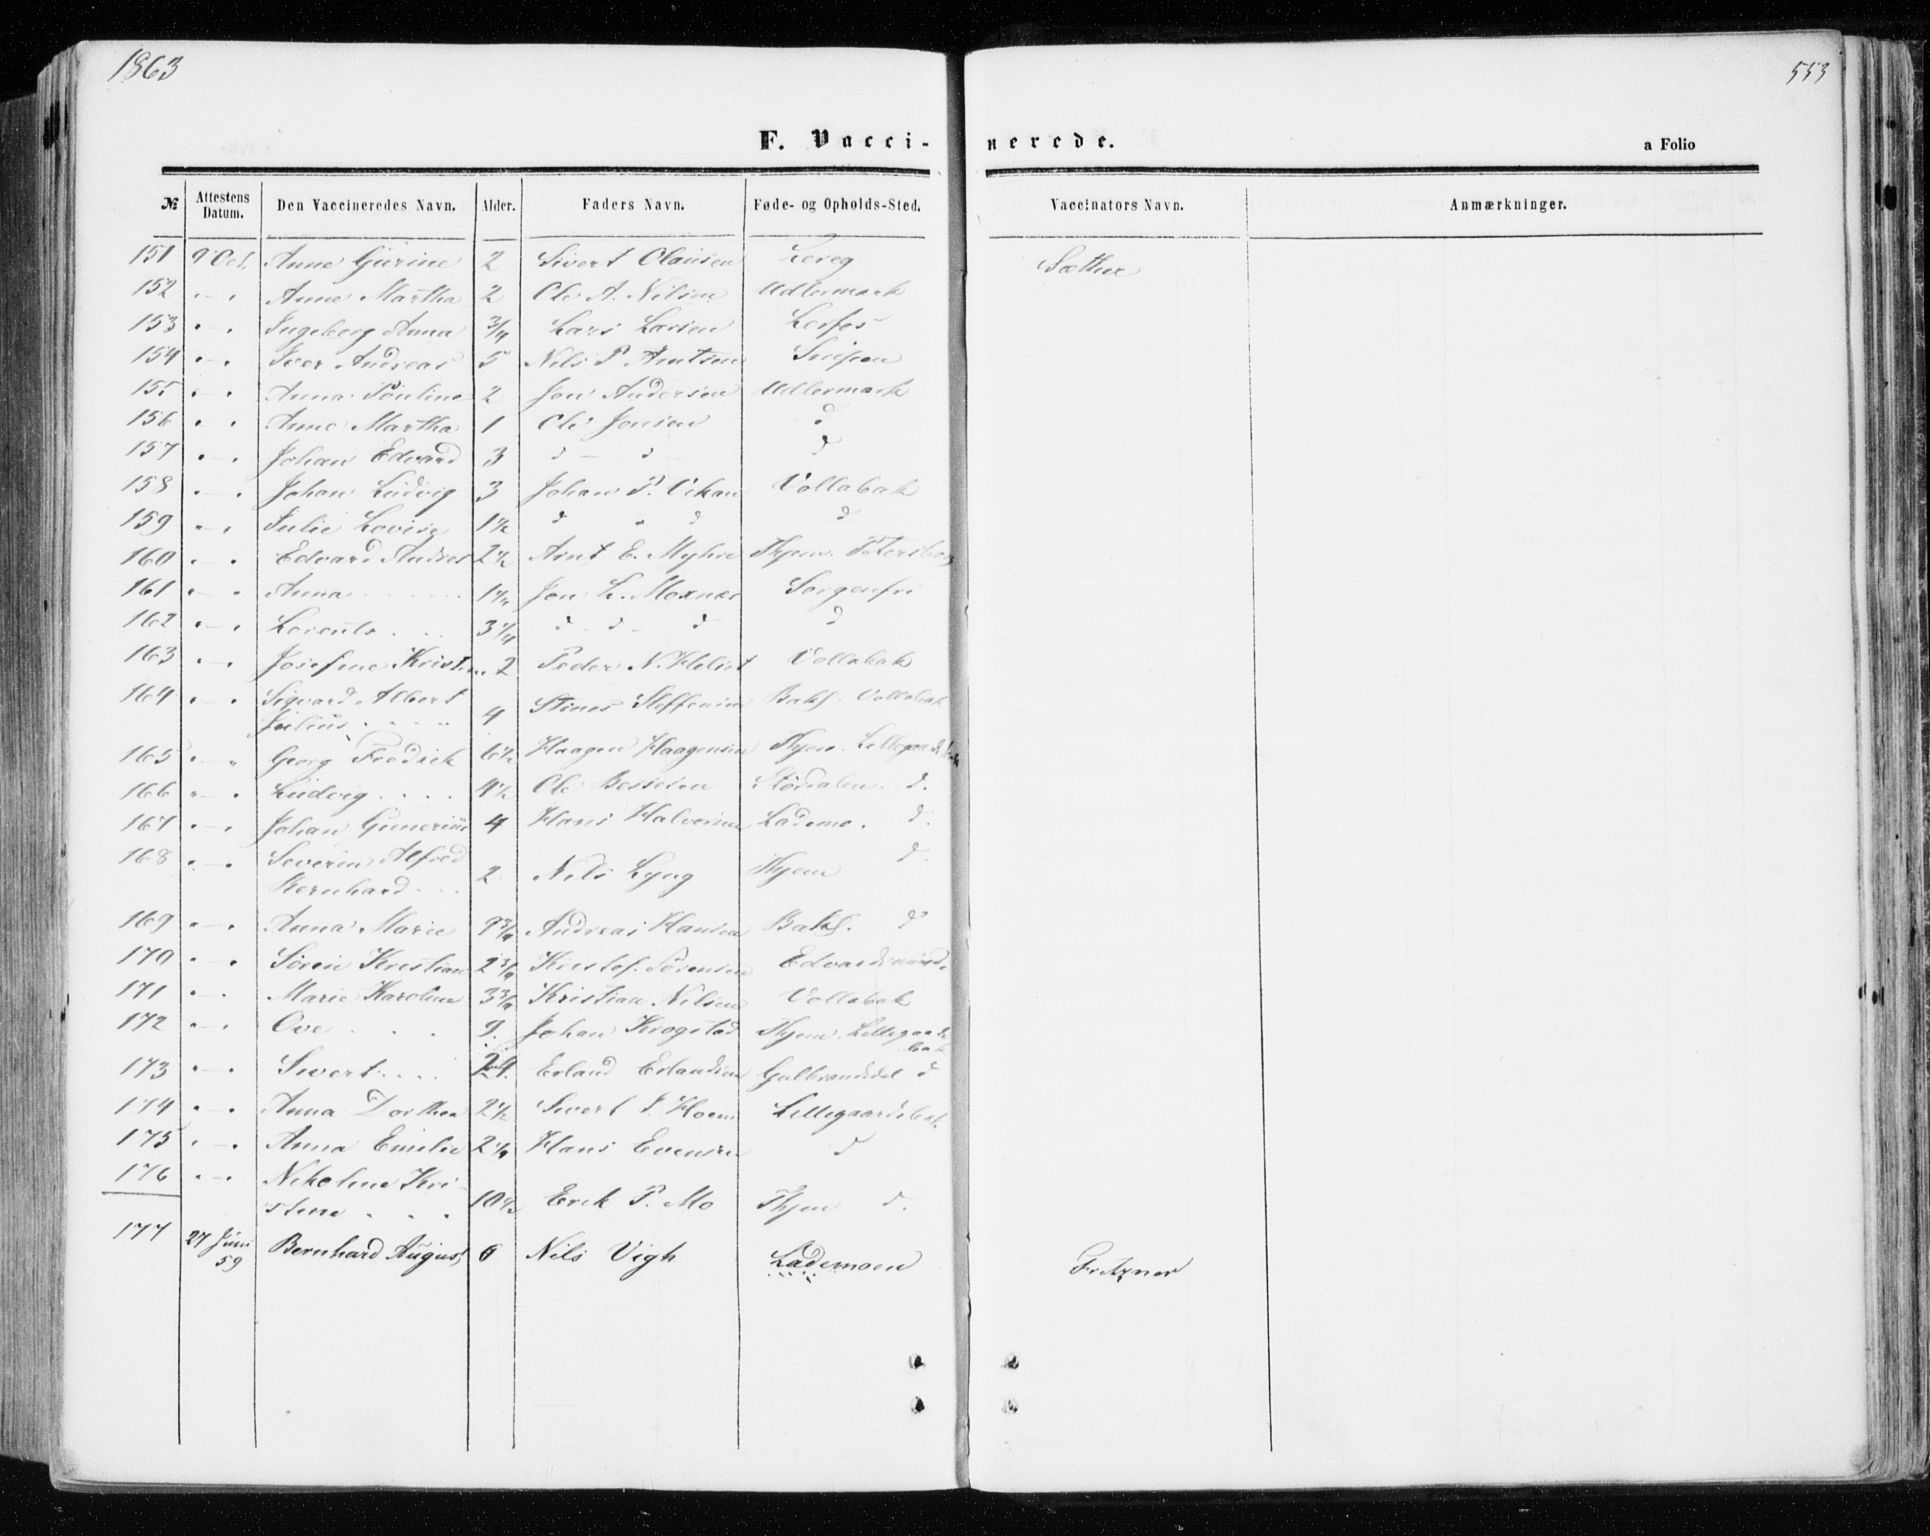 1863
553
F. Vacci-nerede.
a Folio
№ Attestens Datum. Den Vaccineredes Navn. Alder. Faders Navn. Føde- og Opholds-Sted. Vaccinators Navn. Anmærkninger.
151 9 Oct. Anne Gurine 2 Sivert Clausen Sæther
152 " - " Anne Martha 2 Ole A. Nilsen
153 " - " Ingeborg Anna 3/4 Lars Larsen Lerfos
154 " - " Iver Andreas 5 Nils P. Arntsen
155 " - " Anna Pauline 2 Jon Andersen
156 " " Anne Martha 1 Ole Jonsen d
157 " - " Johan Edvard 3 d - d - d
158 " - " Johan Ludvig 3 Johan P. Vikan Vollabak
159 " - " Julie Lovise 1 1/2 d " d d
160 " - " Edvard Andreas 2 1/2 Arnt E. Myhre Thjem. Petersborg
161 " - " Anna 1 1/4 Jon L. Moxnes Sorgenfri
162 " - " Lorents 3 1/4 d - d - d d
163 " - " Josefine Kristine 2 Peder N. Vollabak
164 " - " Sigvard Albert
Julius 4 Steffensen Bakl. Vollabak
165 " - " Georg Fredrik 6 1/2 Haagen Haagensen Thjem. Lillegaardsbak
166 " - " Ludvig 4 1/2 Ole Bessesen Stördalen. d.
167 " - " Johan Gunerius 4 Hans Halvorsen Lademo. d.
168 " - " Severin Alfred
Bernhard 2 Nils Lyng Thjem d.
169 " - " Anna Marie 9 3/4 Andreas Hansen Bakl. d
170 " - " Sören Kristian 2 3/4 Kristof. Sörensen
171 " - " Marie Karoline 3 3/4 Kristian Nilsen Vollabak
172 " - " Ove 9. Johan Krogstad Thjem. Lillegaards
bak
173 " - " Sivert Erland Erlandsen d
174 " - " Anna Dorthea 2 1/2 Sivert P. Hoem Lillegaardsbak.
175 " - " Anna Emilie 2 1/4 Hans Evensen d
176 " - " Nikoline Kri-
stine 10 1/2 Erik P. Mo Thjem d.
177 27 Juni 59 Bernhard August 6 Nils Vigh Lademoen Fritzner